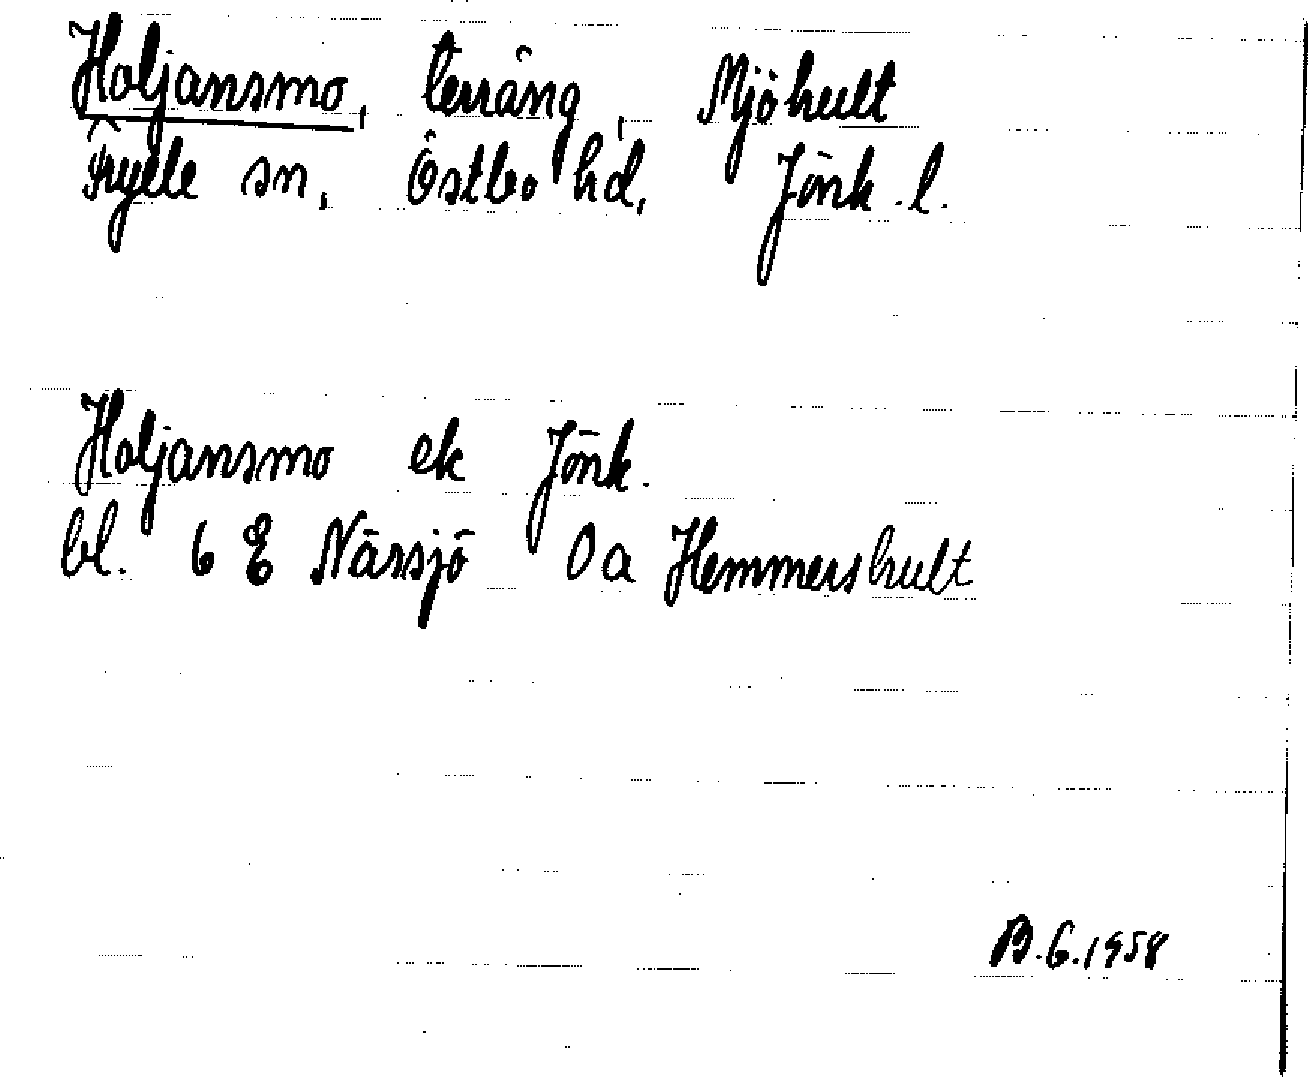 Holjansmo, terräng, Mjöhult
Fryele sn, Östbo hd, Jönk. l.
Holjansmo ek Jönk.
bl. 6 E Nässjö 0 a Hemmershult
B.G.1958